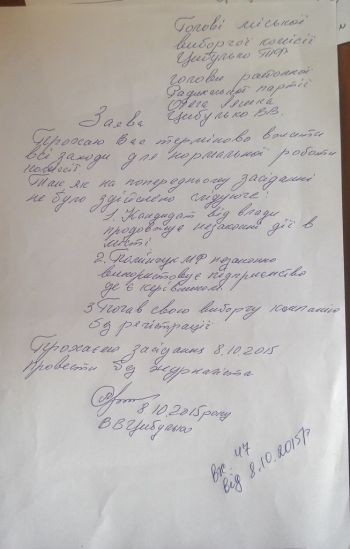 Голові міської
виборчої комісії
Цибулько П.Ф.
голови районної
Радикальної партії
Олега Ляшка
Цибулько В.В.
Заява
Прохаю Вас терміново вжити
всі заходи для нормальної роботи
комісії
Так як на попередньому засіданні
не було здійснено слідуюче:
1. Кандидат від влади
продовжує незаконні дії в
місті
2. МФ незаконно
використовує підприємство
де є керівником.
3 Почав свою виборчу компанію
без регістрації
Прохаємо засідання 8.10.2015
провести без журналіста
8.10.2015 року
В В Цибулько
Вх. 47
від 8.10.2015р